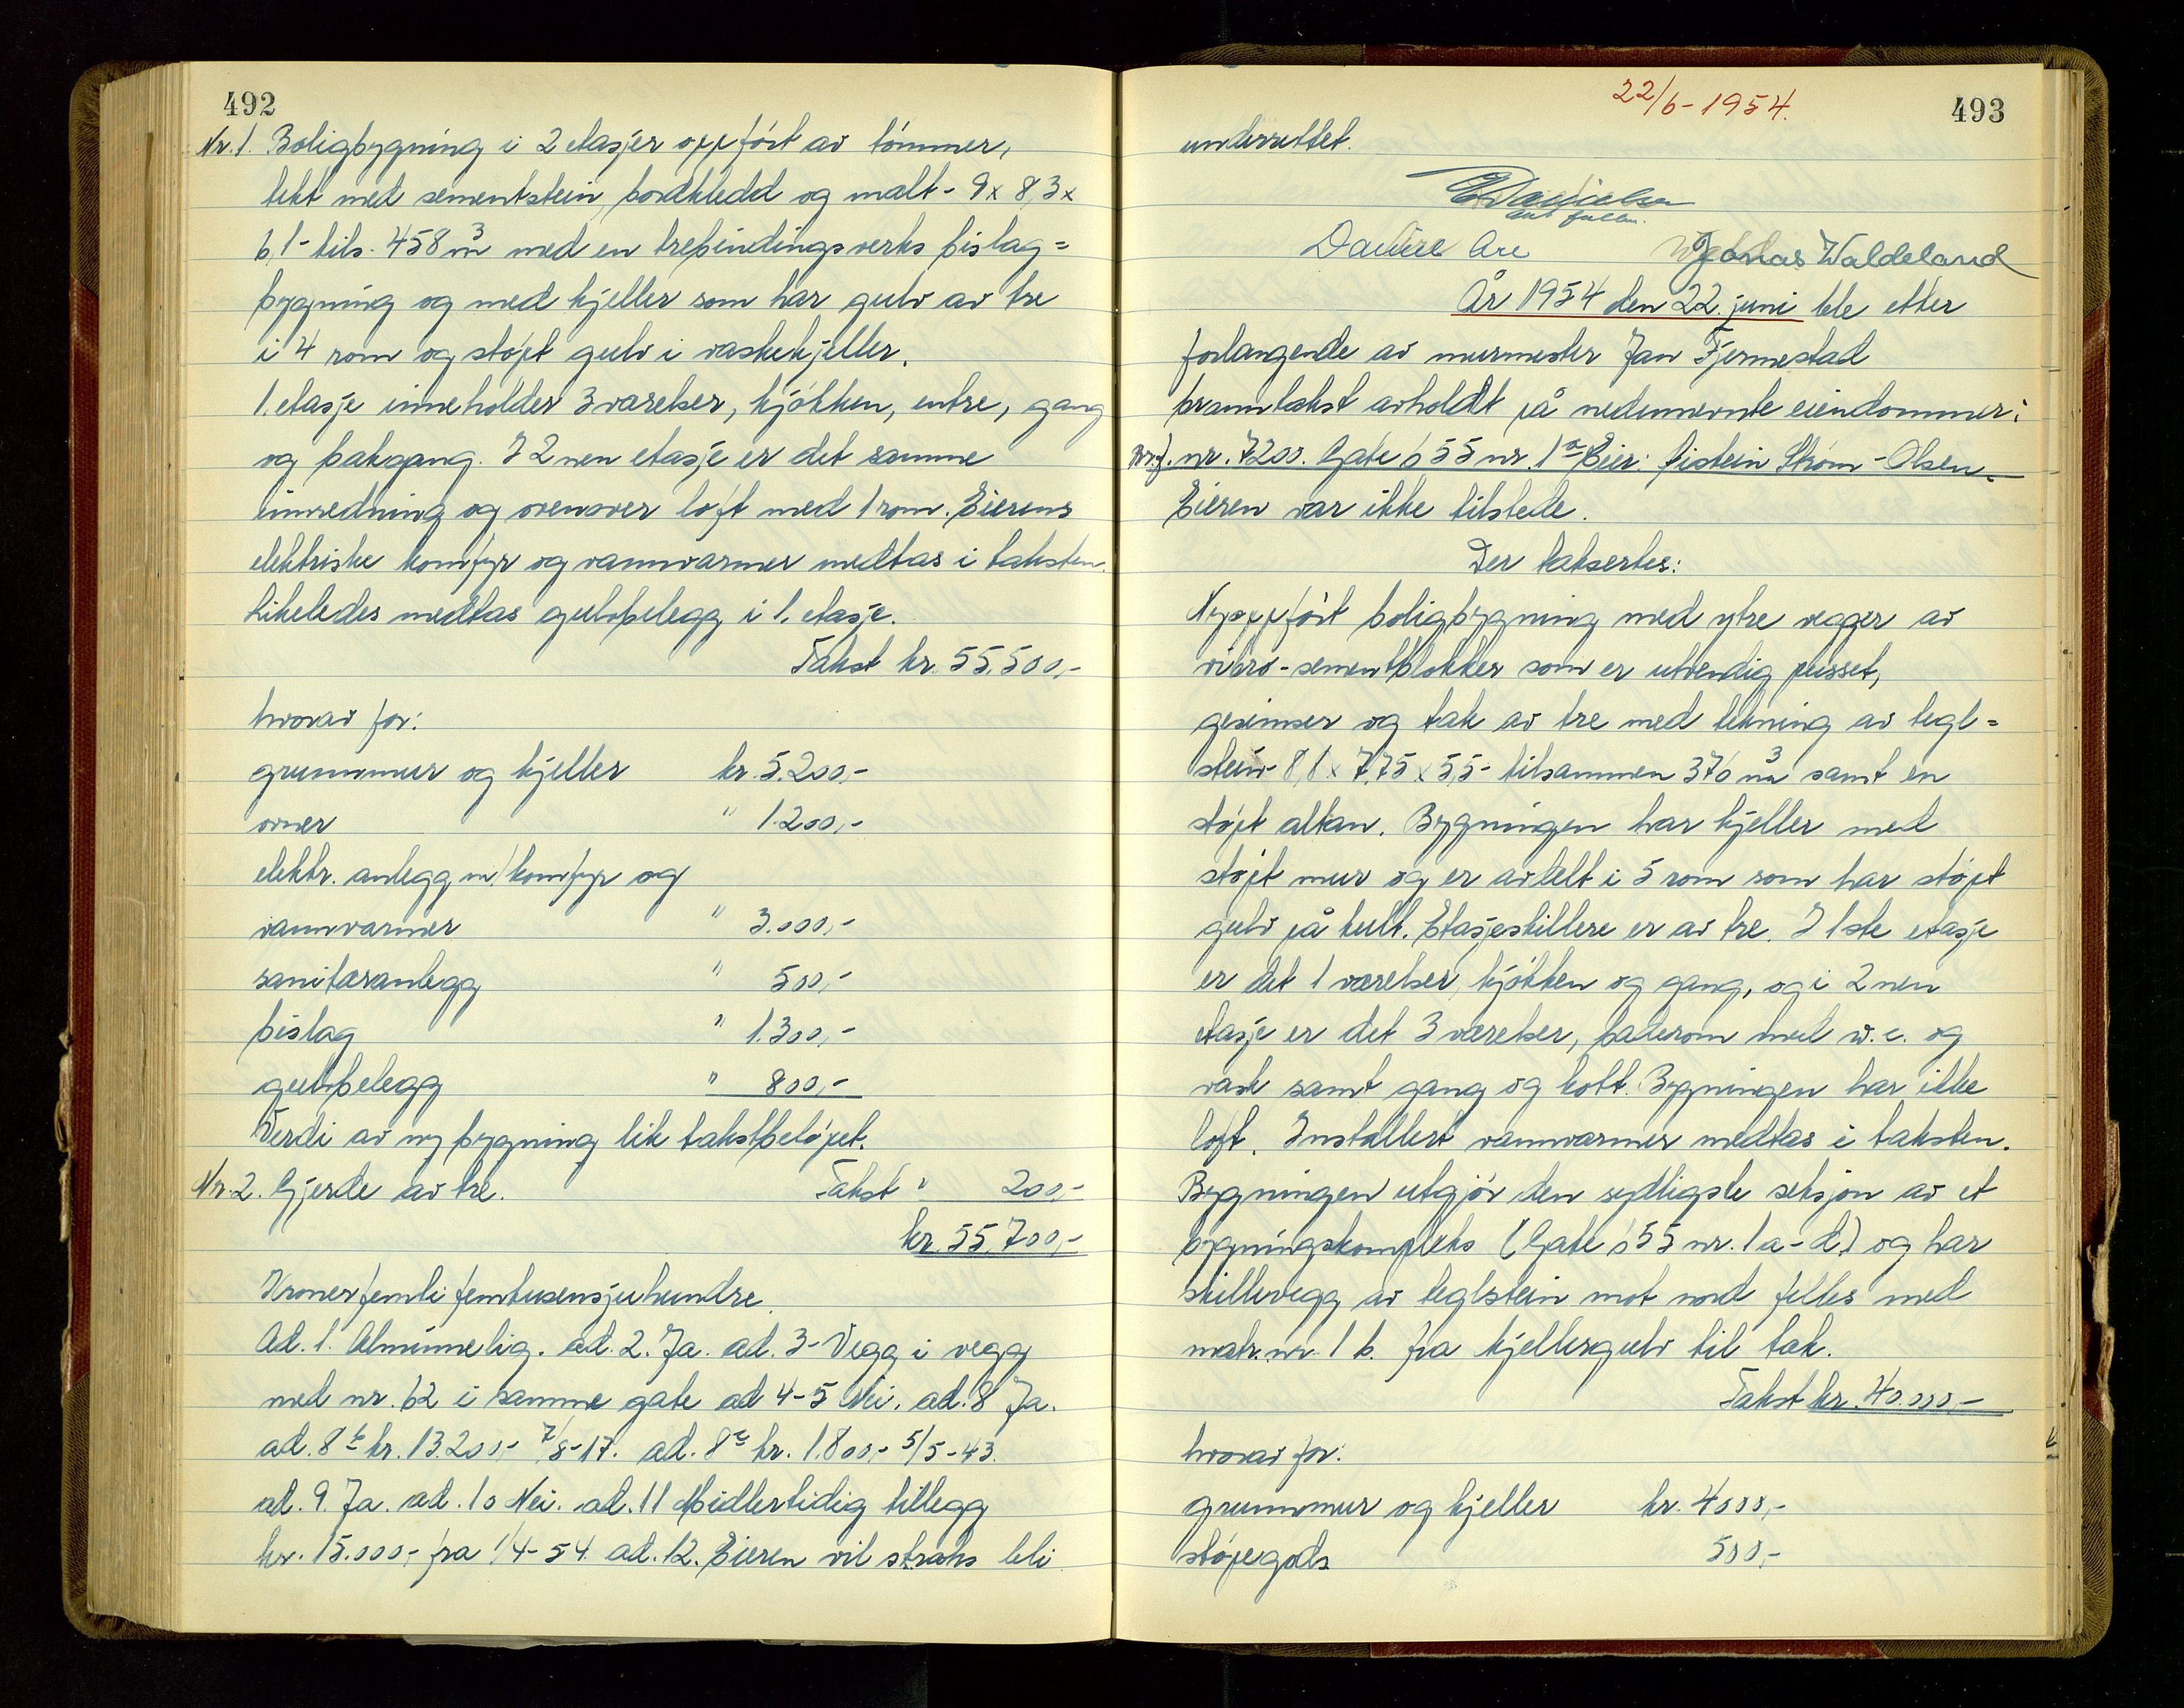 492
Nr. 1. Boligbygning i 2 etasjer oppført av tømmer,
tekt med sementstein, bordkledd og malt - 9 x 8,3 x
6,1 - tils. 458 m3 med en trebindingsverks bislag=
bygning og med kjeller som har gulv av tre
i 4 rom og støpt gulv i vaskekjeller.
1. etasje inneholder 3 værelser, kjøkken, entre, gang
og bakgang. I 2nen etasje er det samme
innredning og ovenover loft med 1 rom. Eierens
elektriske komfyr og vannvarmer medtas i taksten.
Likeledes medtas gulvbelegg i 1. etasje.
Takst kr. 55.500,-
hvorav for:
grunnmur og kjeller kr. 5.200,-
ovner " 1.200,-
elektr. anlegg m/komfyr og
vannvarmer " 3.000,-
sanitæranlegg " 500,-
bislag " 1.300,-
gulvbelegg " 800,-
Verdi av ny bygning lik takstbeløpet.
Nr. 2. Gjerde av tre. Takst " 200,-
kr. 55.700,-
Kroner femti femtusensjuhundre.
Ad. 1. Alminnelig. ad. 2. Ja. ad. 3 - Vegg i vegg
med nr. 62 i samme gate ad 4-5 Nei. ad. 8 Ja.
ad. 8 b kr. 13.200,- 7/8-17. ad. 8 c kr. 1.800,- 5/5-43.
ad. 9. Ja. ad. 10 Nei. ad. 11 Midlertidig tillegg
kr. 15.000,- fra 1/4-54. ad. 12. Eieren vil straks bli
22/6-1954.
493
underrettet.
E Danielsen
Daniel Are Jonas Waldeland
År 1954 den 22. juni ble etter
forlangende av murmester Jan Fjermestad
branntakst avholdt på nedennevnte eiendommer:
nr. 7200. Gate ó 55 nr. 1 a Eier: Eistein Strøm-Olsen.
Eieren var ikke tilstede.
Der taksertes:
Nyoppført boligbygning med ytre vegger av
vibro-sementblokker som er utvendig pusset,
gesimser og tak av tre med tekning av tegl=
stein - 8,8 x 7,75 x 5,5 - tilsammen 376 m3 samt en
støpt altan. Bygningen har kjeller med
støpt mur og er avdelt i 5 rom som har støpt
gulv på kult. Etasjeskillere er av tre. I 1ste etasje
er det 1 værelser, kjøkken og gang, og i 2nen
etasje er det 3 værelser, baderom med w.c. og
vask samt gang og kott. Bygningen har ikke
loft. Installert vannvarmer medtas i taksten.
Bygningen utgjør den sydligste seksjon av et
bygningskompleks (Gate ó 55 nr. 1 a-d) og har
skillevegg av teglstein mot nord felles med
matr. nr. 1 b. fra kjellergulv til tak.
Takst kr. 40.000,-
hvorav for:
grunnmur og kjeller kr. 4000,-
støpegods 500,-